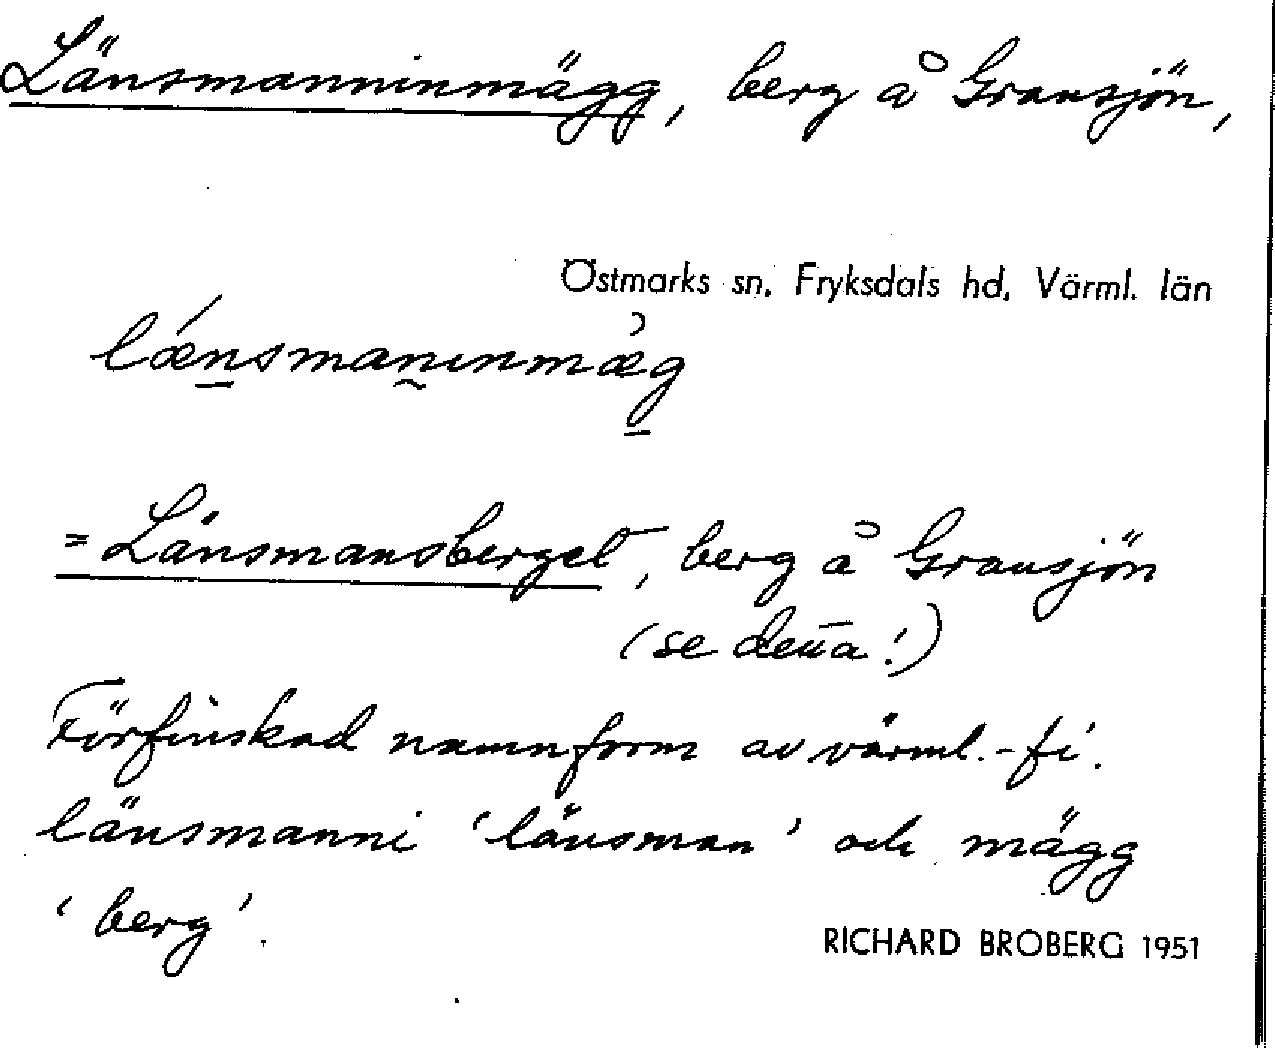 Länsmanninmägg, berg å Gransjön,
Östmarks sn, Fryksdals hd, Värml. län
lǽn̲smann̰ınmæ̀g̲
= Länsmansberget, berg å Gransjön
(se detta!)
Förfinskad namnform av värml.-fi.
länsmanni 'länsman' och mägg
'berg'.
RICHARD BROBERG 1951